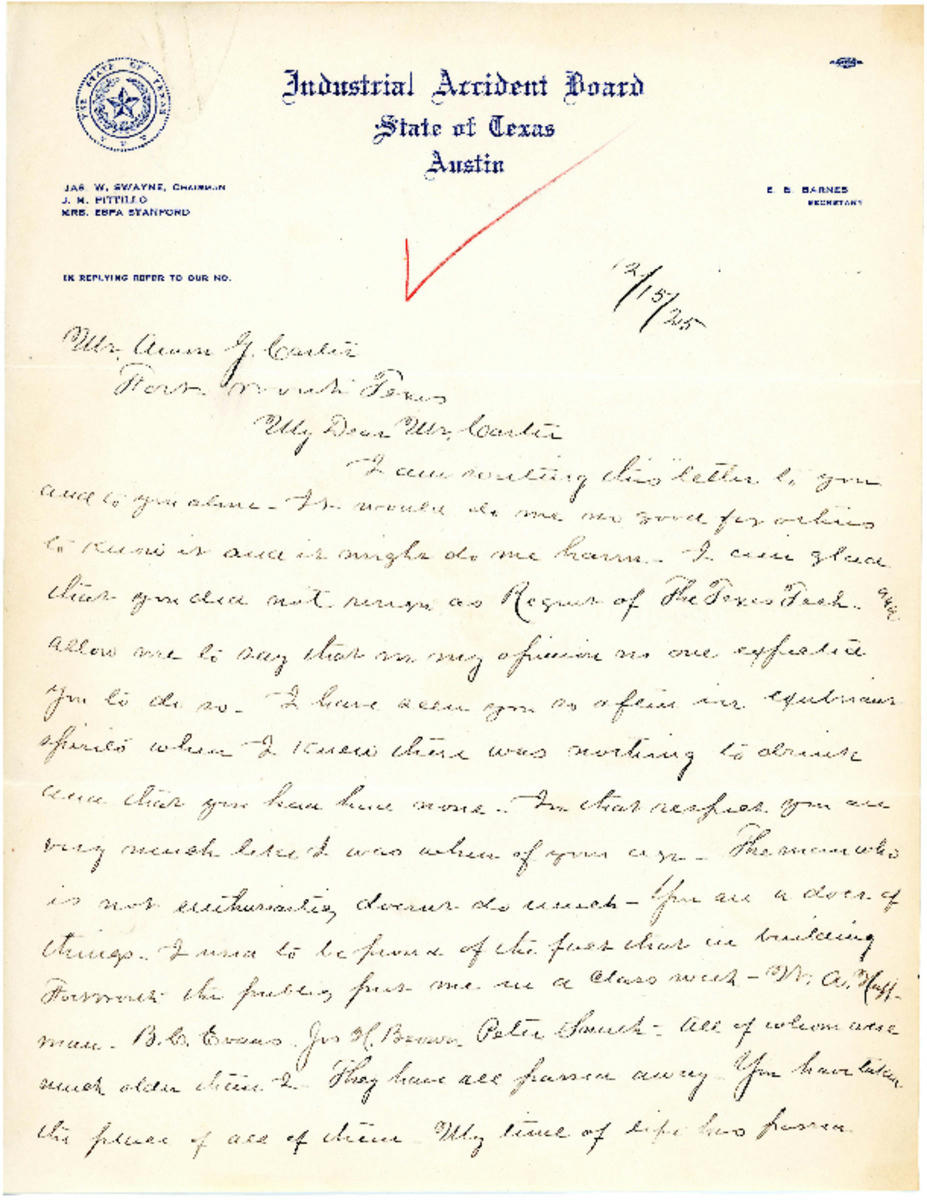 THE STATE OF TEXAS
Industrial Accident Board
State of Texas
Austin
JAS. W. SWAYNE, CHAIRMAN
J. H. PITTILLO
MRS. ESPA STANFORD
E. B. BARNES
SECRETARY
IN REPLYING REFER TO OUR NO.
12/15/25
Mr. Amon G. Carter
Fort Worth Texas
My Dear Mr. Carter
I am writing this letter to you
and to you alone - It would do me no good for others
to know it and it might do me harm - I am glad
that you did not resign as Regent of The Texas Tech. and
allow me to say that in my opinion no one expected
you to do so - I have seen you so often in exuberant
spirits when I knew there was nothing to drink
and that you had had none - In that respect you are
very much like I was when of your age - The man who
is not enthusiastic, doesnt do much - You are a doer of
things - I used to be proud of the fact that in building
Fort Worth the public put me in a class with - W. A. Huff-
man - B. C. Evans Jos H. Brown Peter Smith - All of whom were
much older than I - They have all passed away - You have taken
the place of all of them - My time of life has passed